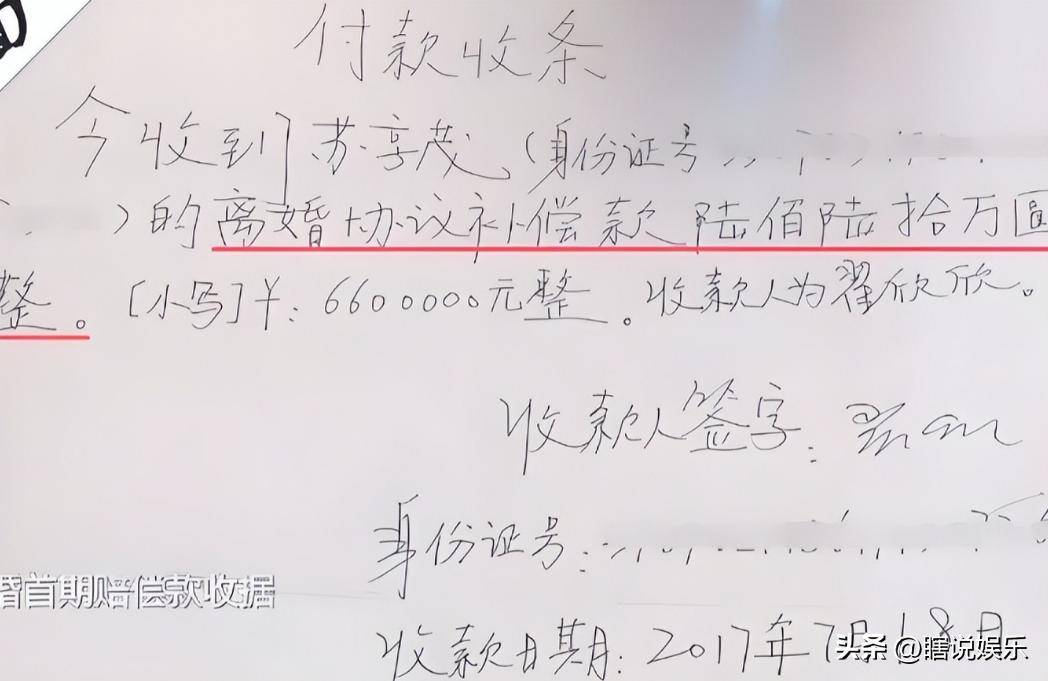 付款收条
今收到苏享茂（身份证号
）的离婚协议补偿款陆佰陆拾万圆
整。[小写]￥：6600000元整。收款人为翟欣欣。
收款人签字：
身份证号：
婚首期赔偿款收据
收款日期：2017年7月18日
头条 @瞎说娱乐